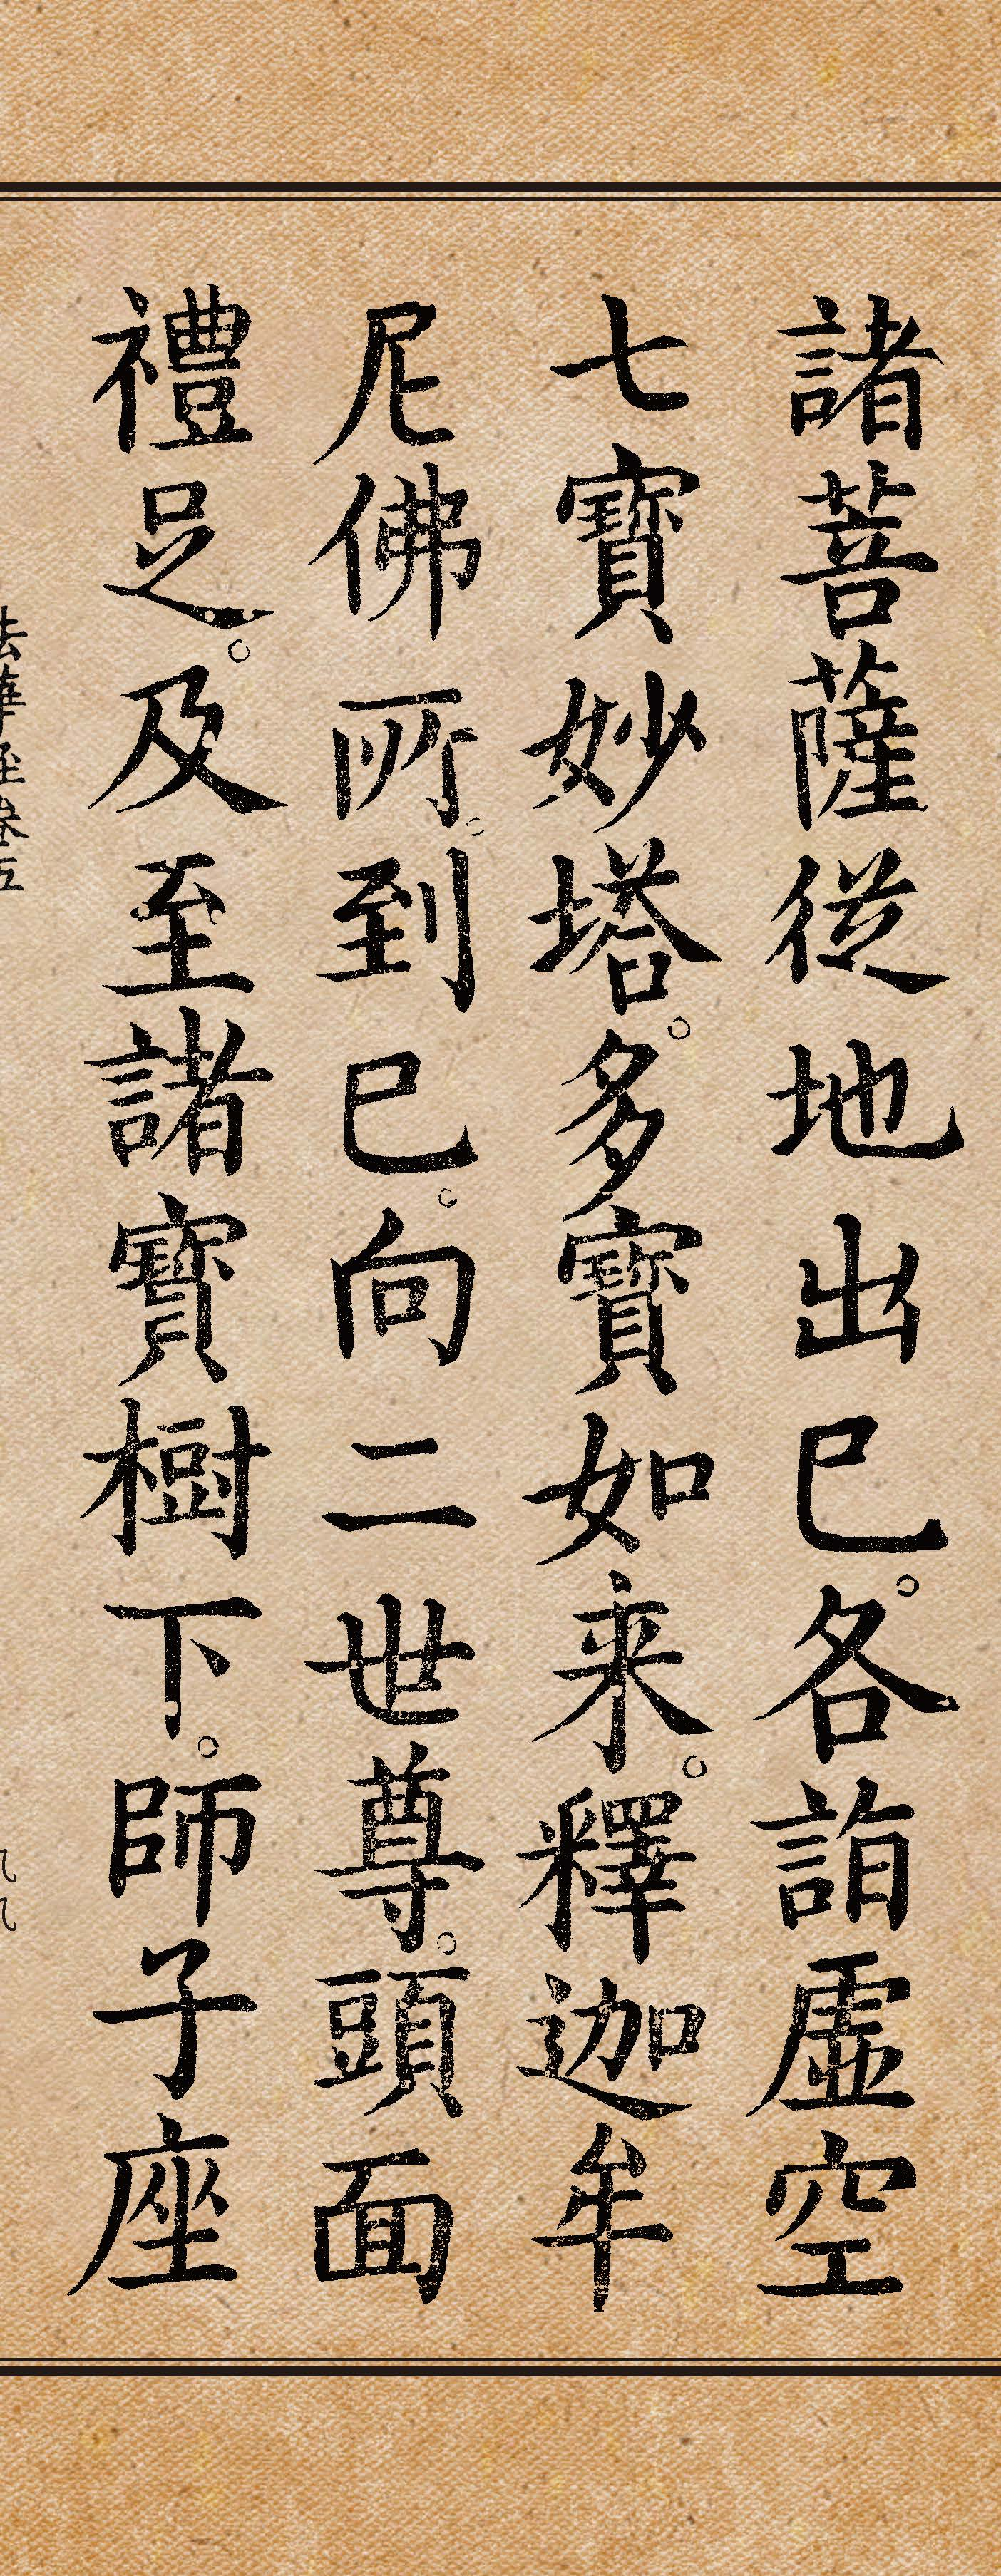 諸菩薩從地出已。各詣虛空
七寶妙塔。多寶如来。釋迦牟
尼佛所。到已。向二世尊。頭面
禮足。及至諸寶樹下。師子座
法華經卷五